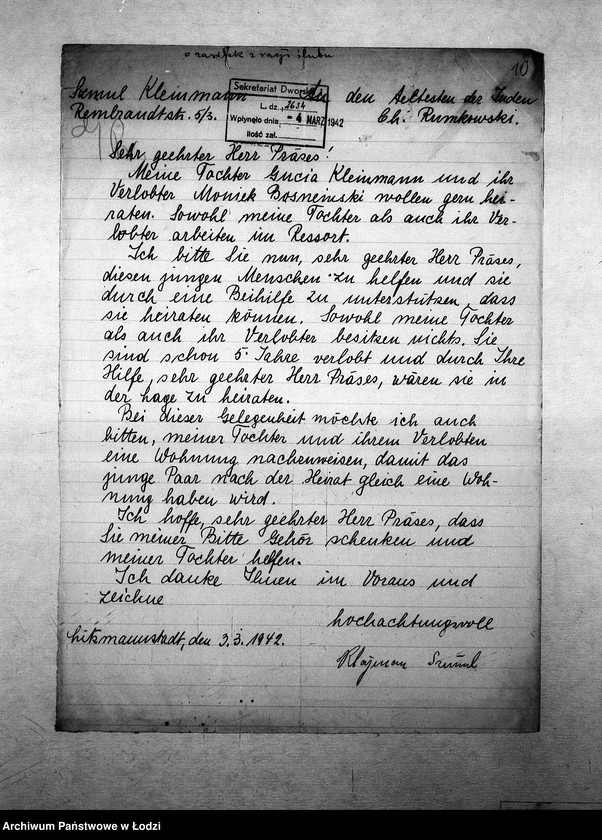 o zasiłek z racji ślubu
10
Szmul Kleinmann An den Aeltesten der Juden
Rembrandtstr. 5/3. Ch. Rumkowski.
Sekretariat Dworska
L. dz. 2634
Wpłynęło dnia - 4 MARZ 1942
Ilość zał.
Sehr geehrter Herr Präses!
Meine Tochter Gucia Kleinmann und ihr
Verlobter Moniek Bosnienski wollen gern hei-
raten. Sowohl meine Tochter als auch ihr Ver-
lobter arbeiten im Ressort.
Ich bitte Sie nun, sehr geehrter Herr Präses,
diesen jungen Menschen zu helfen und sie
durch eine Beihilfe zu unterstützen, dass
sie heiraten können. Sowohl meine Tochter
als auch ihr Verlobter besitzen nichts. Sie
sind schon 5 Jahre verlobt und durch Ihre
Hilfe, sehr geehrter Herr Präses, wären sie in
der Lage zu heiraten.
Bei dieser Gelegenheit möchte ich auch
bitten, meiner Tochter und ihrem Verlobten
eine Wohnung nachzuweisen, damit das
junge Paar nach der Heirat gleich eine Woh-
nung haben wird.
Ich hoffe, sehr geehrter Herr Präses, dass
Sie meiner Bitte Gehör schenken und
meiner Tochter helfen.
Ich danke Ihnen im Voraus und
zeichne
hochachtungsvoll
Litzmannstadt, den 3.3.1942.
Klajman Szmul
Archiwum Państwowe w Łodzi